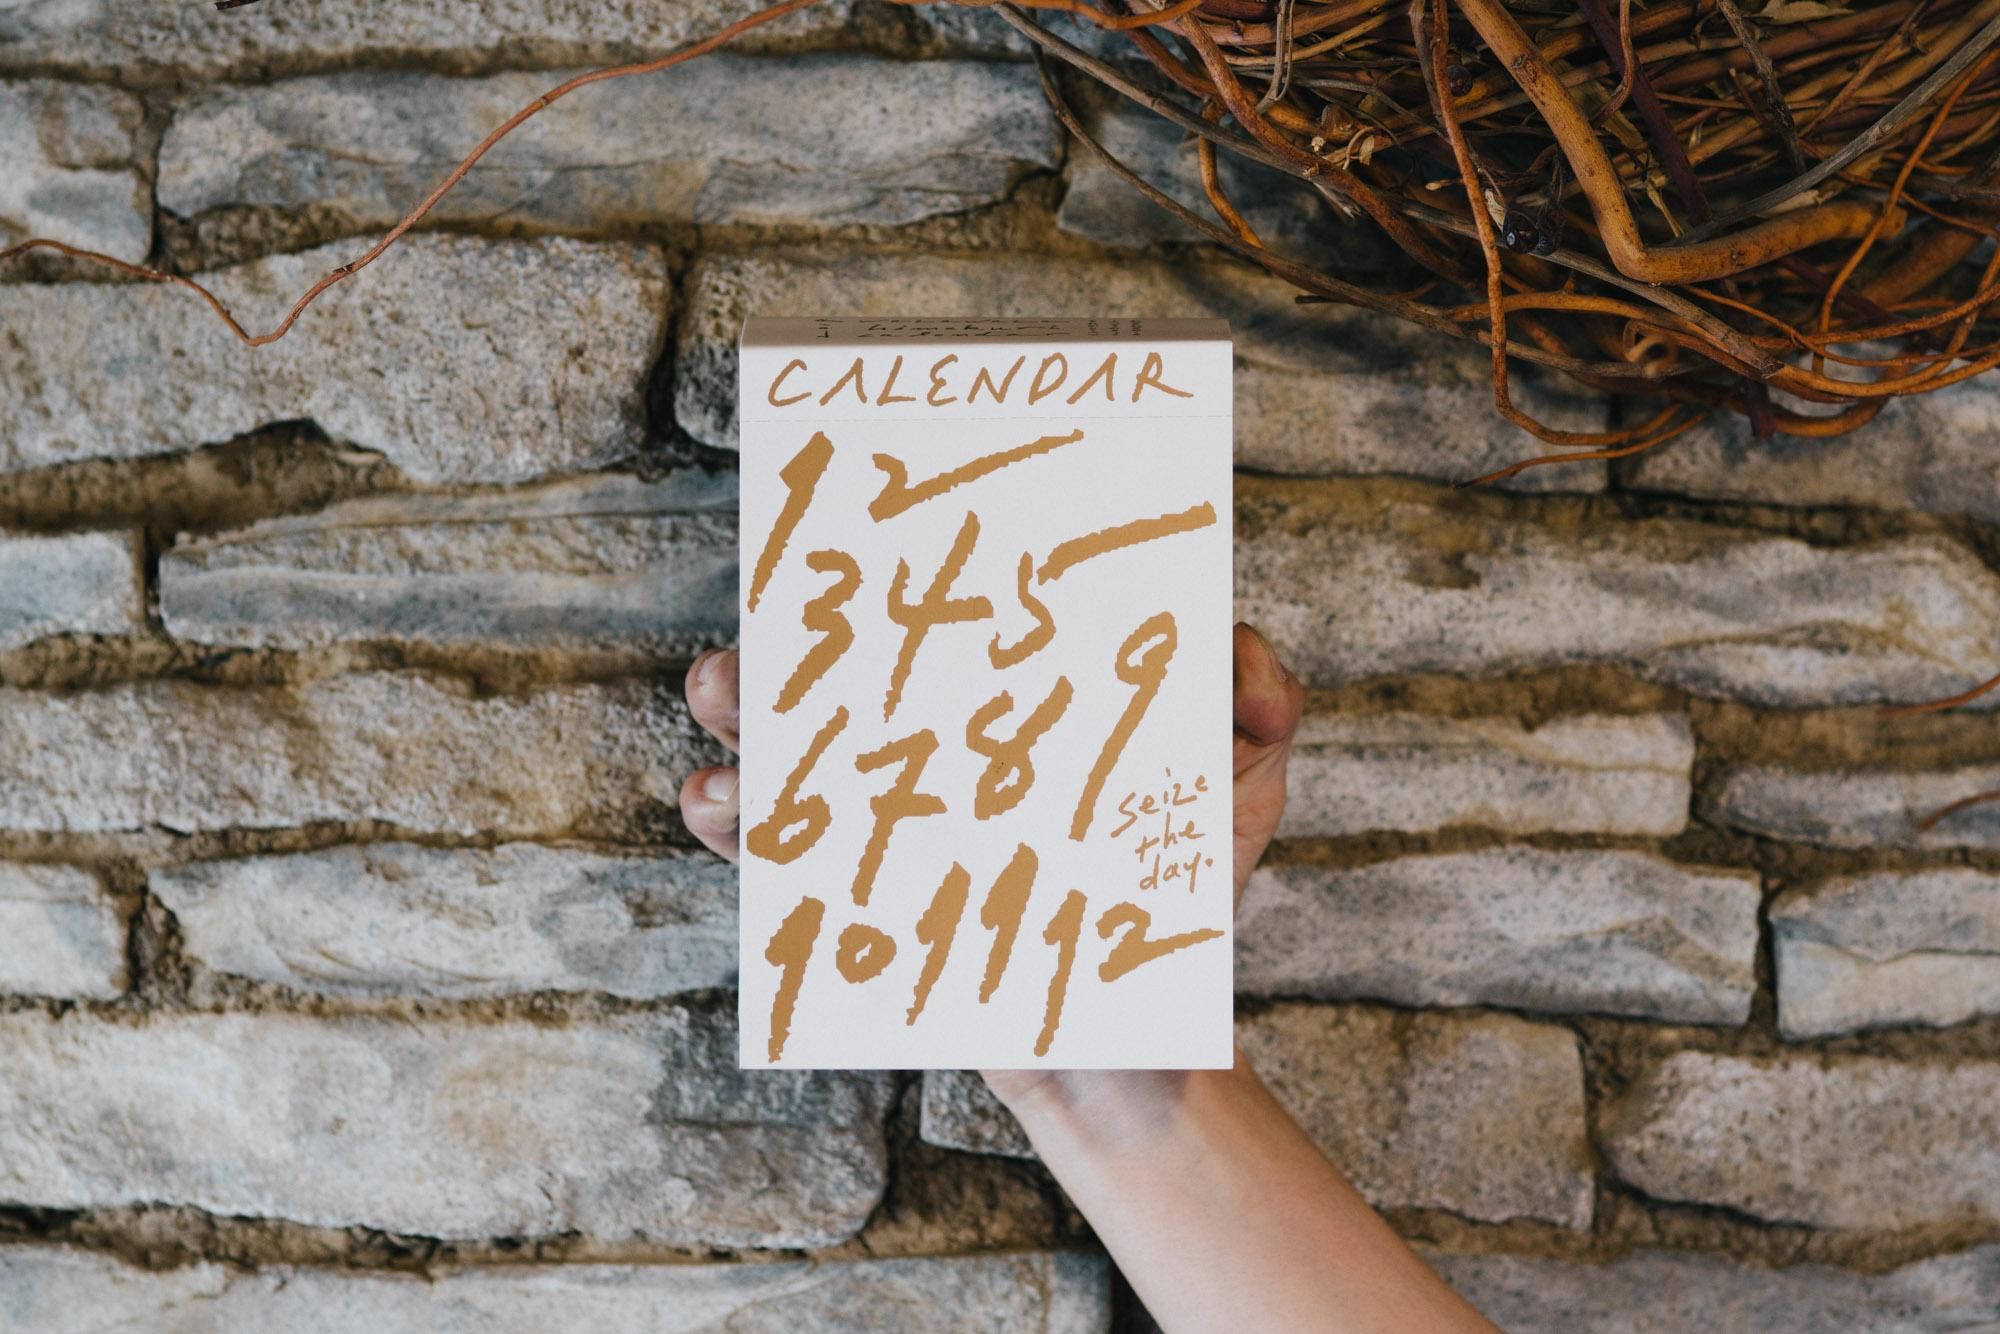 himekuri
calendar
CALENDAR
1 2
3 4 5
6 7 8 9
seize
the
day.
10 11 12